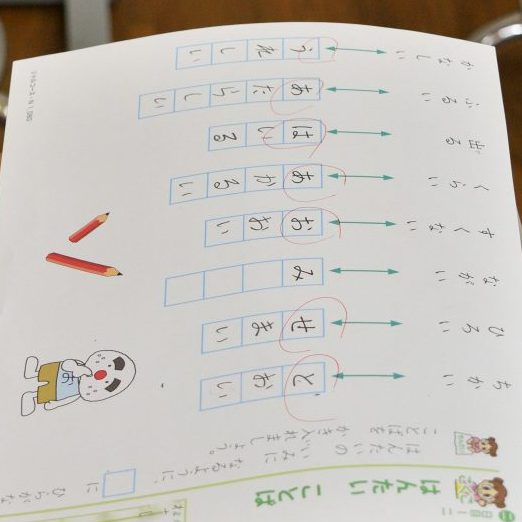 はんたい ことば
はんたいの いみに なるように、
に ひらがな
ことばを
かき入れましょう。
ちかい とおい
ひろい せまい
ながい み
すくない おおい
くらい あかるい
出る はいる
ふるい あたらしい
かなしい うれしい